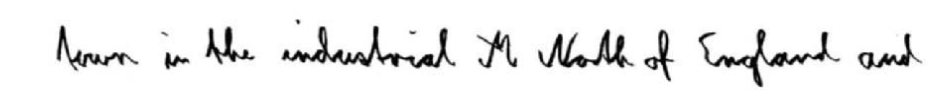 town in the industrial M North of England and